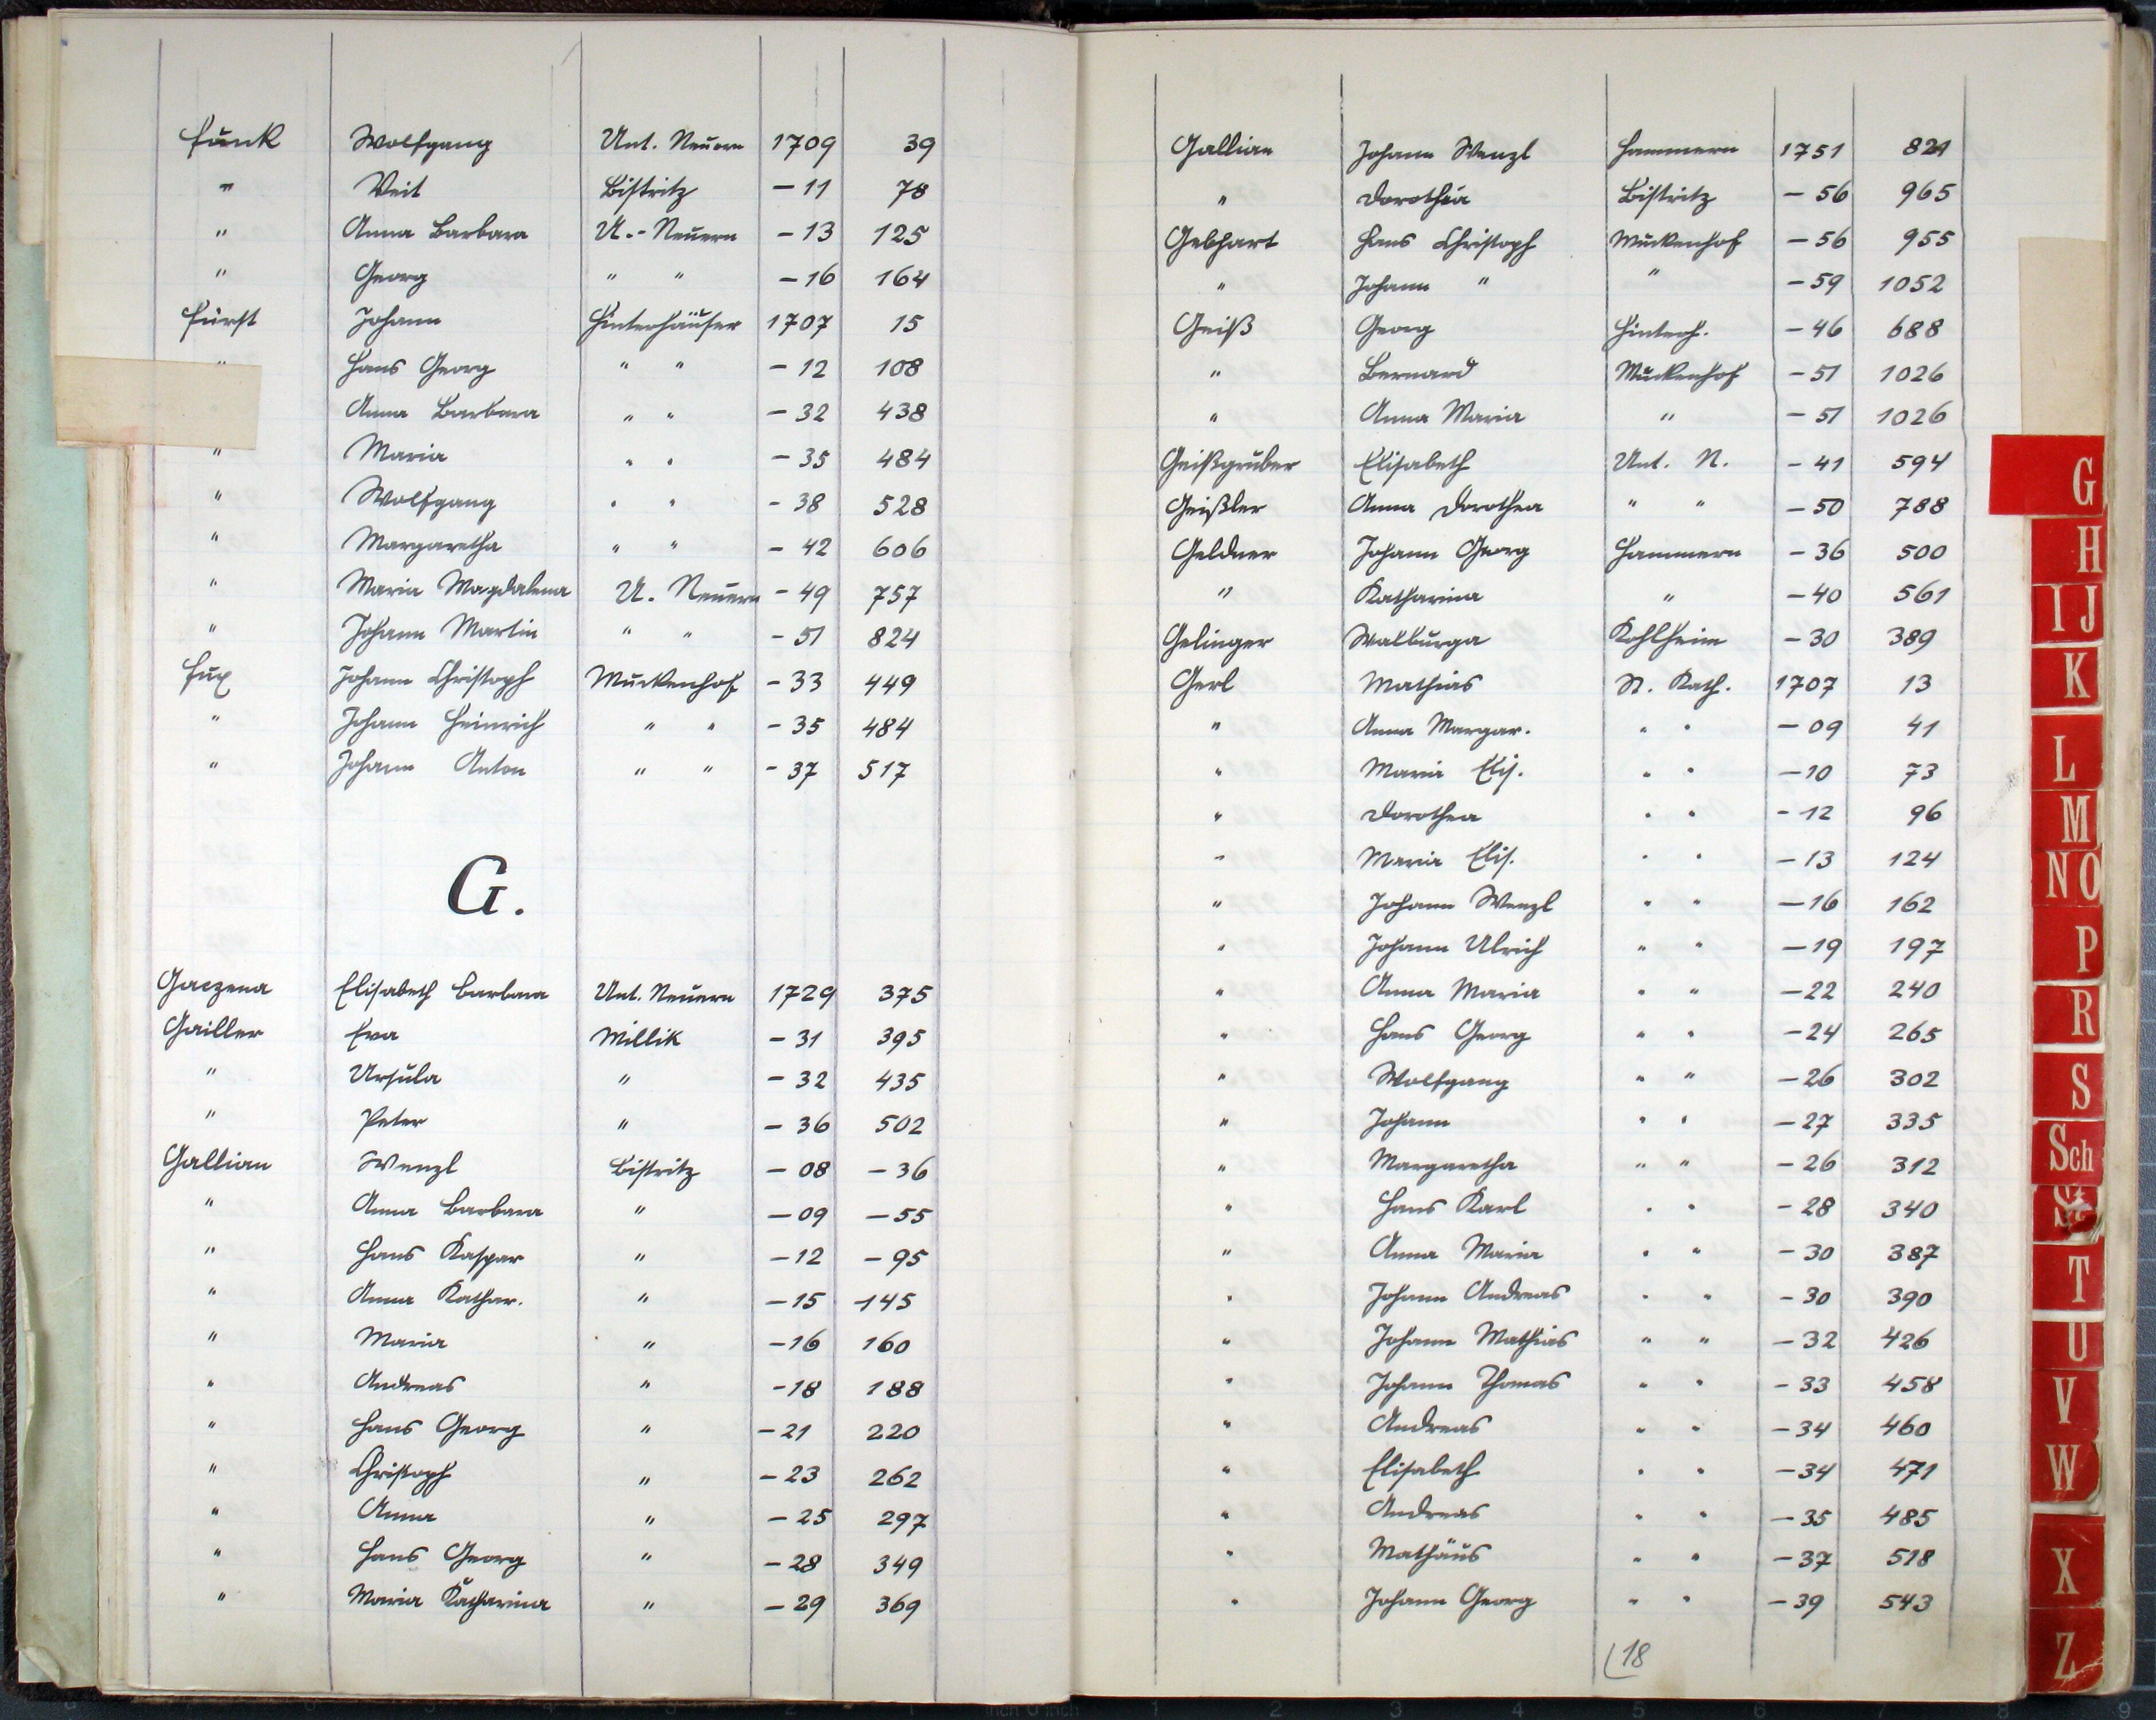 Funk Wolfgang Unt. Neuern 1709 39
" Veit Bistritz – 11 78
" Anna Barbara U.- Neuern – 13 125
" Georg " " – 16 164
Fürst Johann Hinterhäuser 1707 15
" Hans Georg " " – 12 108
Anna Barbara " " – 32 438
" Maria " " – 35 484
" Wolfgang " " – 38 528
" Margaretha " " – 42 606
" Maria Magdalena U. Neuern – 49 757
" Johann Martin " " – 51 824
Fux Johann Christoph Muckenhof – 33 449
" Johann Heinrich " " – 35 484
" Johann Anton " " – 37 517
G.
Gaczena Elisabeth Barbara Unt. Neuern 1729 375
Gailler Eva Millik – 31 395
" Ursula " – 32 435
" Peter " – 36 502
Gallian Wenzl Bistritz – 08 – 36
" Anna Barbara " – 09 – 55
" Hans Kaspar " – 12 – 95
" Anna Kathar. " – 15 145
" Maria " – 16 160
" Andreas " – 18 188
" Hans Georg " – 21 220
" Christoph " – 23 262
" Anna " – 25 297
" Hans Georg " – 28 349
" Maria Katharina " – 29 369
Gallian Johann Wenzl Hammern 1751 821
" Dorothea Bistritz – 56 965
Gebhart Hans Christoph Muckenhof – 56 955
" Johann " " – 59 1052
Geiß Georg Hinterh. – 46 688
" Bernard Muckenhof – 51 1026
" Anna Maria " – 51 1026
Geißgruber Elisabeth Unt. N. – 41 594
Geißler Anna Dorothea " " – 50 788
Geldner Johann Georg Hammern – 36 500
" Katharina " – 40 561
Gelinger Walburga Kohlheim – 30 389
Gerl Mathias St. Kath. 1707 13
" Anna Margar. " " – 09 41
" Maria Elis. " " – 10 73
" Dorothea " " – 12 96
" Maria Elis. " " – 13 124
" Johann Wenzl " " – 16 162
" Johann Ulrich " " – 19 197
" Anna Maria " " – 22 240
" Hans Georg " " – 24 265
" Wolfgang " " – 26 302
" Johann " " – 27 335
" Margaretha " " – 26 312
" Hans Karl " " – 28 340
" Anna Maria " " – 30 387
" Johann Andreas " " – 30 390
" Johann Mathias " " – 32 426
" Johann Thomas " " – 33 458
" Andreas " " – 34 460
" Elisabeth " " – 34 471
" Andreas " " – 35 485
" Mathäus " " – 37 518
" Johann Georg " " – 39 543
18
G
H
IJ
K
L
M
NO
P
R
S
Sch
St
T
U
V
W
X
Z